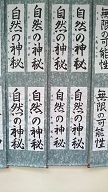 無限の可能性
自然の神秘
自然の神秘
自然の神秘
自然の神秘
無限の可能性
自然の神秘
自然の神秘
自然の神秘
自然の神秘